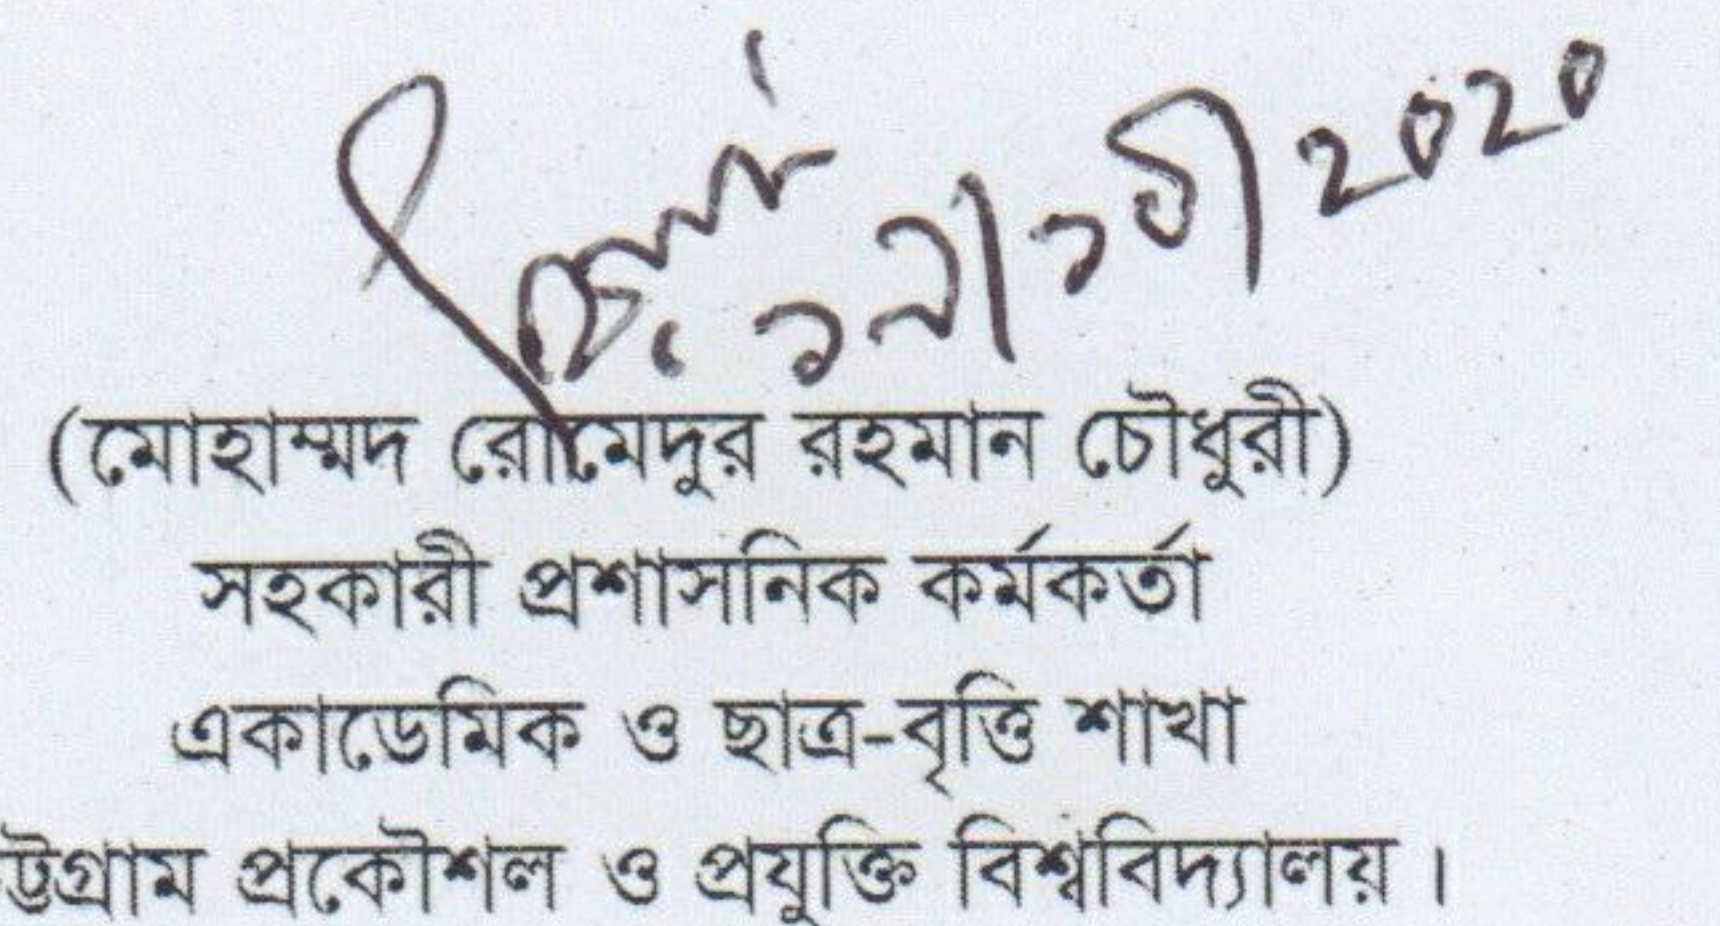 2020
(মোহাম্মদ রোমেদুর রহমান চৌধুরী)
সহকারী প্রশাসনিক কর্মকর্তা
একাডেমিক ও ছাত্র-বৃত্তি শাখা
ট্টগ্রাম প্রকৌশল ও প্রযুক্তি বিশ্ববিদ্যালয়।